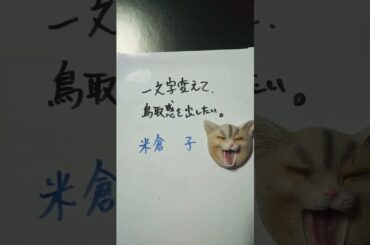 一文字変えて、
鳥取感を出したい。
米倉 子